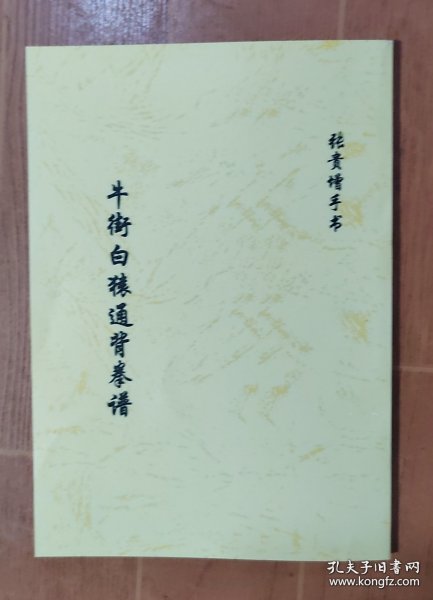 张贵增手书
牛街白猿通背拳谱
孔夫子旧书网
www.kongfz.com